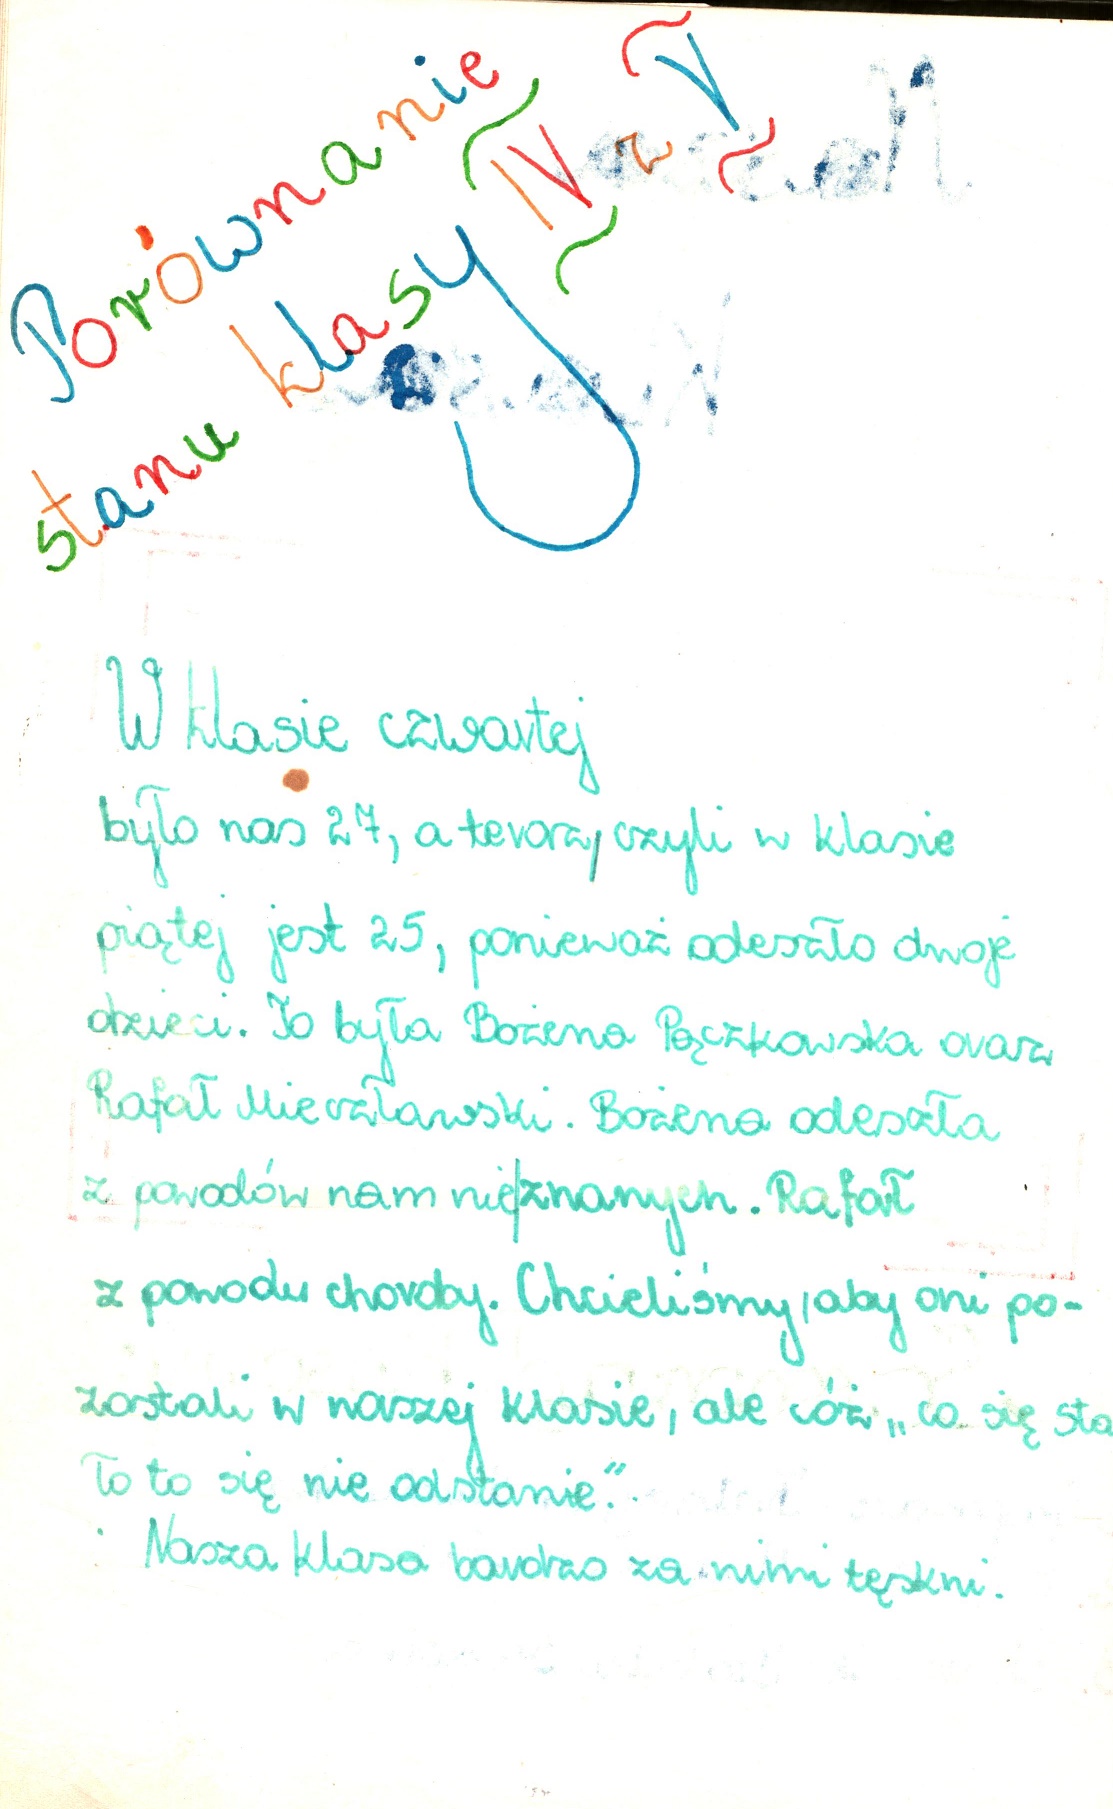 Porównanie
stanu klasy IV z V
W klasie czwartej
było nas 27, a teraz, czyli w klasie
piątej jest 25, ponieważ odeszło dwoje
dzieci. To była Bożena Pączkowska oraz
Rafał Mieczławski. Bożena odeszła
z powodów nam nie|znanych. Rafał
z powodu choroby. Chcieliśmy, aby oni po-
zostali w naszej klasie, ale cóż „co się sta
ło to się nie odstanie".
Nasza klasa bardzo za nimi tęskni.